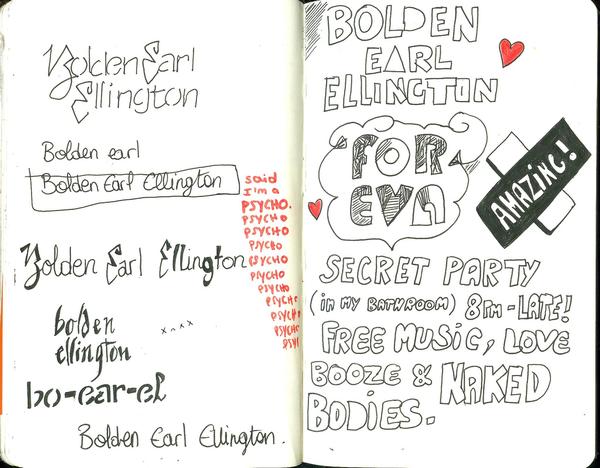 Bolden Earl
Ellington
Bolden earl
Bolden Earl Ellington
said
I'm a
PSYCHO.
PSYCHO
PSYCHO
PSYCHO
PSYCHO
PSYCHO
PSYCHO
PSYCHO
PSYCHO
PSYCHO
PSY
Bolden Earl Ellington
bolden
ellington
bo-ear-el
Bolden Earl Ellington.
BOLDEN
EARL
ELLINGTON
FOR
EVA
AMAZING!
SECRET PARTY
(IN MY BATHROOM) 8PM-LATE!
FREE MUSIC, LOVE
BOOZE & NAKED
BODIES.